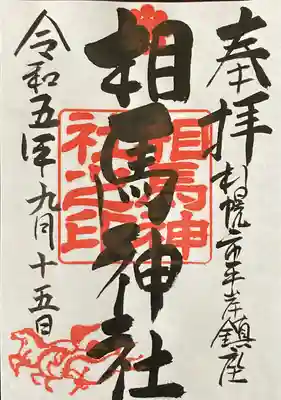 奉拝
札幌市平岸鎮座
相馬神社
相馬神
社之印
令和五年九月十五日